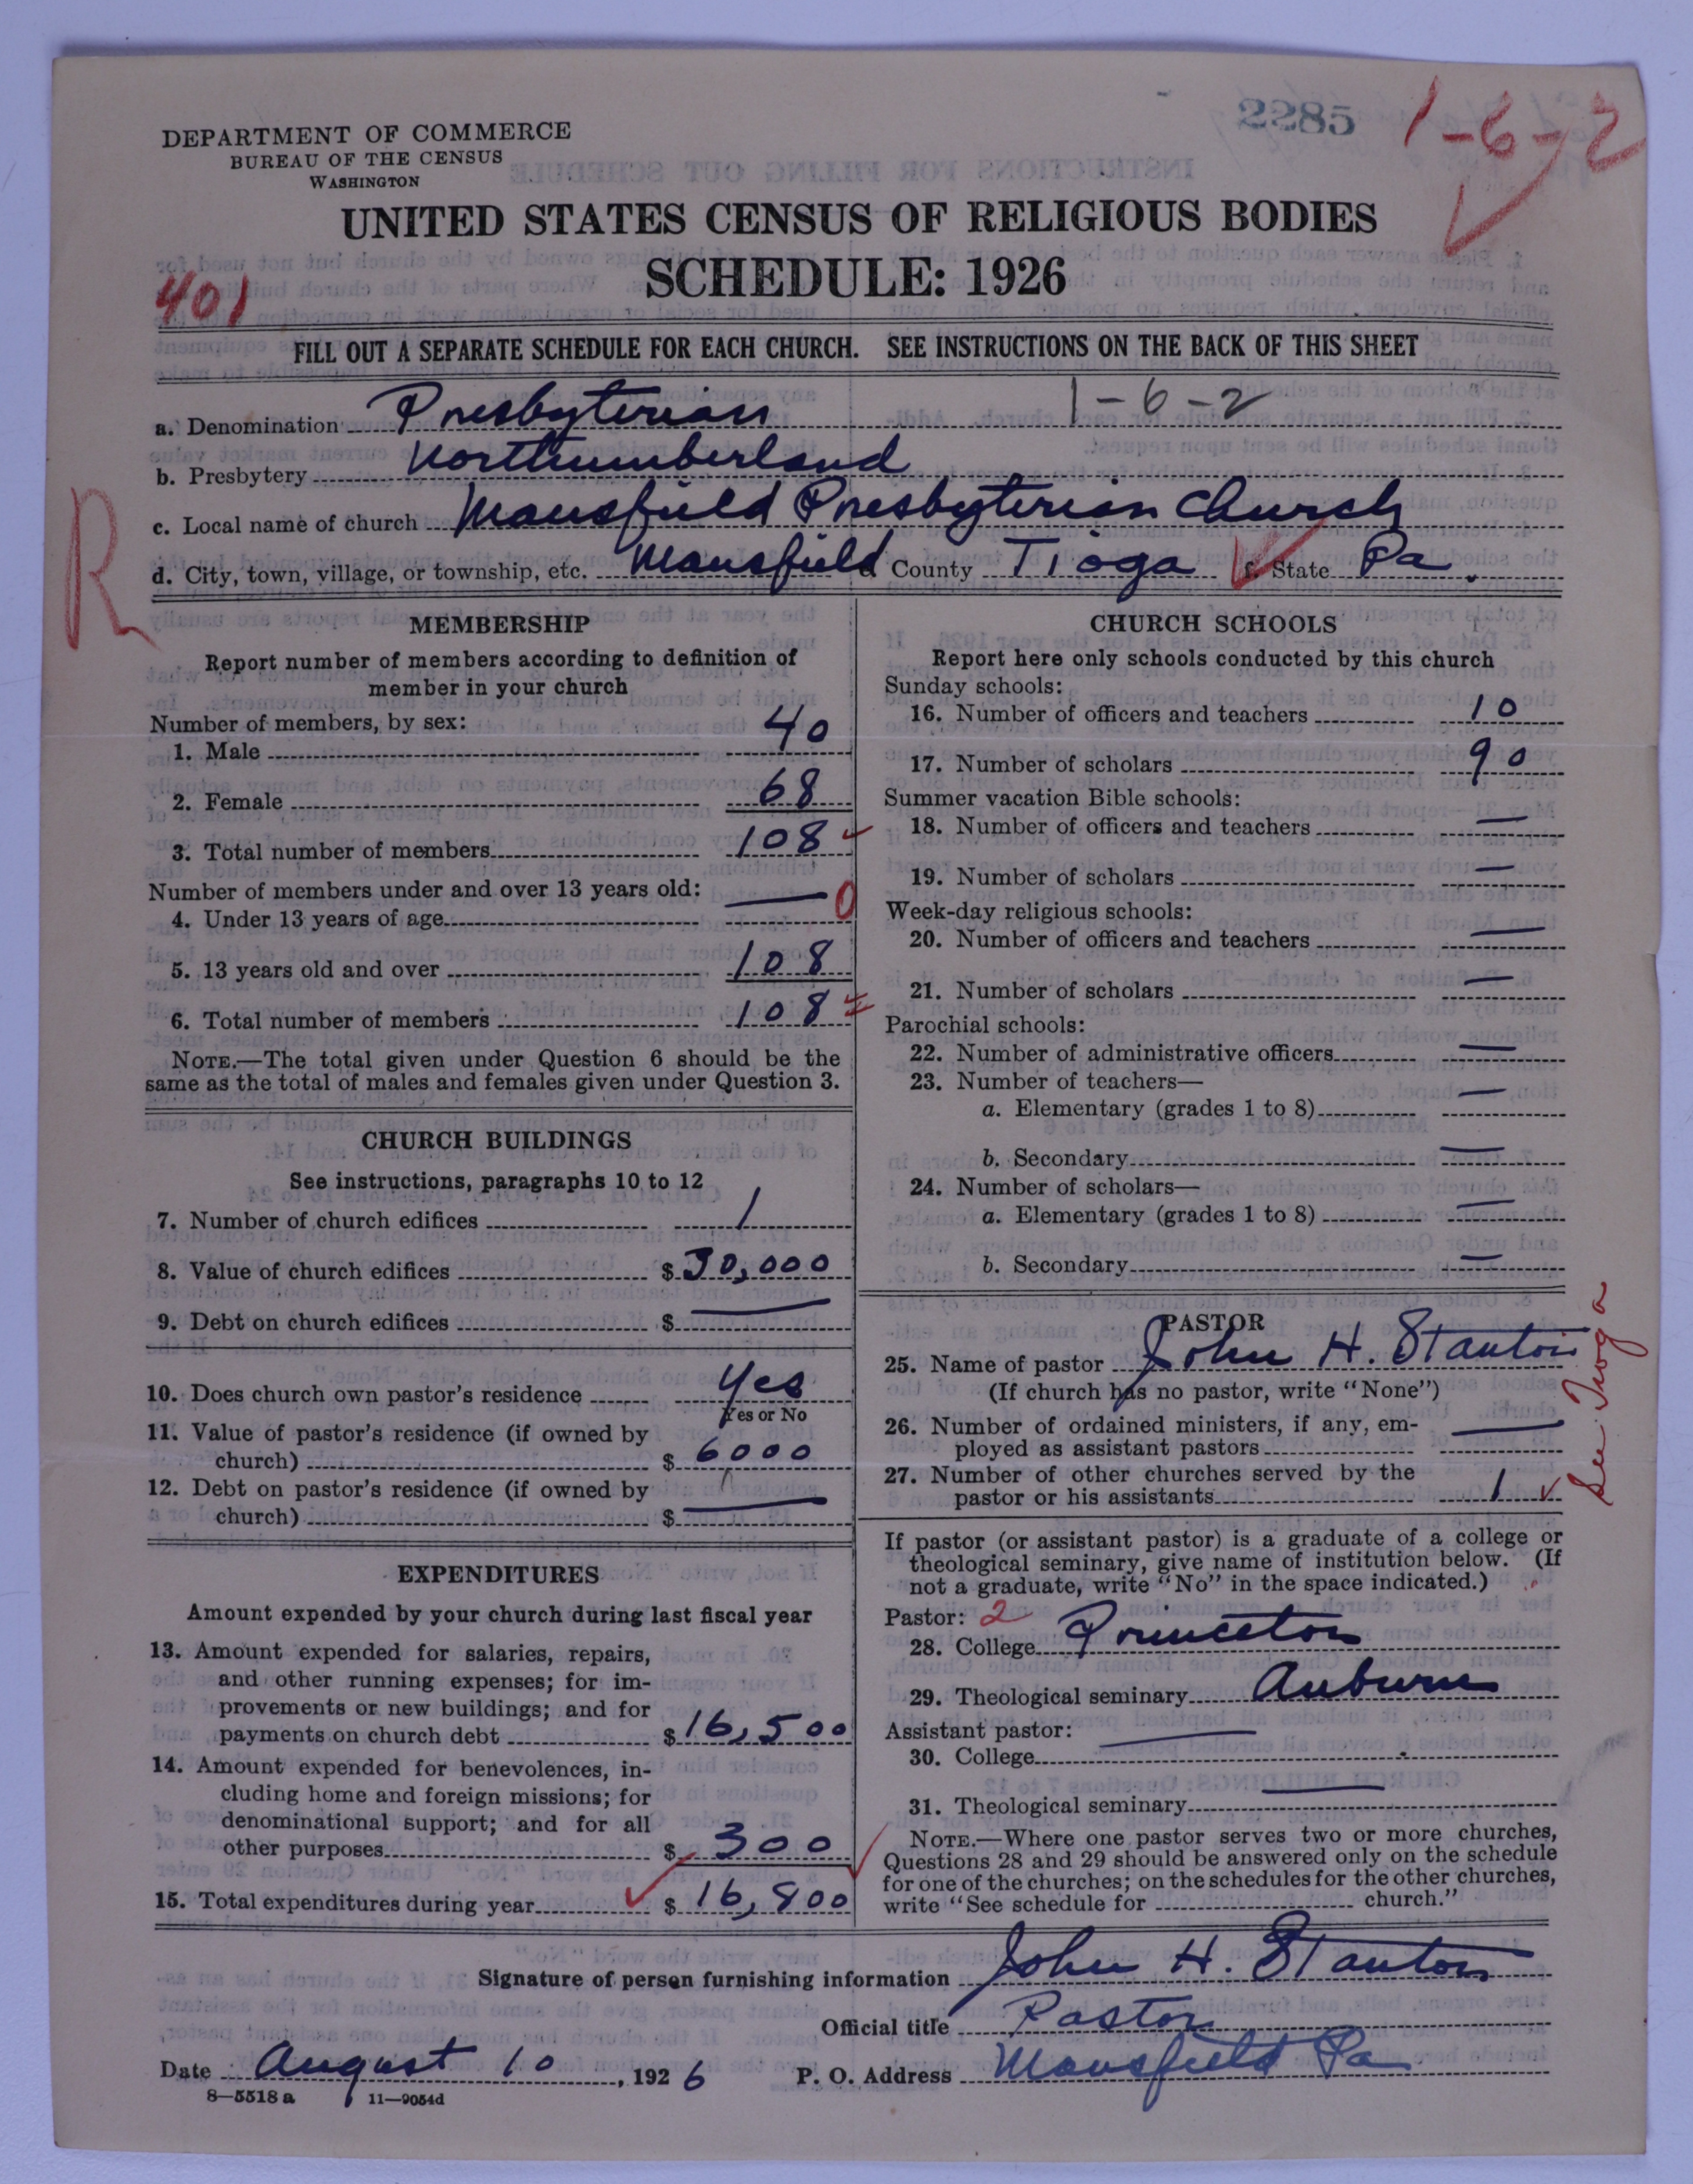 2285
1-6-2
DEPARTMENT OF COMMERCE
BUREAU OF THE CENSUS
WASHINGTON
UNITED STATES CENSUS OF RELIGIOUS BODIES
SCHEDULE: 1926
401
FILL OUT A SEPARATE SCHEDULE FOR EACH CHURCH. SEE INSTRUCTIONS ON THE BACK OF THIS SHEET
1-6-2
a. Denomination Presbyterian
b. Presbytery Northumberland
R
c. Local name of church Mansfield Presbyterian Church
d. City, town, village, or township, etc. Mansfield County Tioga f. State Pa.
MEMBERSHIP
Report number of members according to definition of
member in your church
Number of members, by sex:
1. Male 40
2. Female 68
3. Total number of members 108
Number of members under and over 13 years old:
4. Under 13 years of age — 0
5. 13 years old and over 108
6. Total number of members 108
NOTE.—The total given under Question 6 should be the
same as the total of males and females given under Question 3.
CHURCH BUILDINGS
See instructions, paragraphs 10 to 12
7. Number of church edifices 1
8. Value of church edifices $ 30,000
9. Debt on church edifices $ —
10. Does church own pastor's residence Yes
Yes or No
11. Value of pastor's residence (if owned by
church) $ 6000
12. Debt on pastor's residence (if owned by
church) $ —
EXPENDITURES
Amount expended by your church during last fiscal year
13. Amount expended for salaries, repairs,
and other running expenses; for im-
provements or new buildings; and for
payments on church debt $ 16,500
14. Amount expended for benevolences, in-
cluding home and foreign missions; for
denominational support; and for all
other purposes $ 300
15. Total expenditures during year $ 16,800
CHURCH SCHOOLS
Report here only schools conducted by this church
Sunday schools:
16. Number of officers and teachers 10
17. Number of scholars 90
Summer vacation Bible schools:
18. Number of officers and teachers —
19. Number of scholars —
Week-day religious schools:
20. Number of officers and teachers —
21. Number of scholars —
Parochial schools:
22. Number of administrative officers —
23. Number of teachers—
a. Elementary (grades 1 to 8) —
b. Secondary —
24. Number of scholars—
a. Elementary (grades 1 to 8) —
b. Secondary —
PASTOR
25. Name of pastor John H. Stanton
(If church has no pastor, write "None")
26. Number of ordained ministers, if any, em-
ployed as assistant pastors —
27. Number of other churches served by the
pastor or his assistants 1
See Tioga
If pastor (or assistant pastor) is a graduate of a college or
theological seminary, give name of institution below. (If
not a graduate, write "No" in the space indicated.)
Pastor: 2
28. College Princeton
29. Theological seminary Auburn
Assistant pastor:
30. College —
31. Theological seminary —
NOTE.—Where one pastor serves two or more churches,
Questions 28 and 29 should be answered only on the schedule
for one of the churches; on the schedules for the other churches,
write "See schedule for church."
Signature of person furnishing information John H. Stanton
Official title Pastor
Date August 10, 1926 P. O. Address Mansfield Pa
8—5518 a 11—9054d